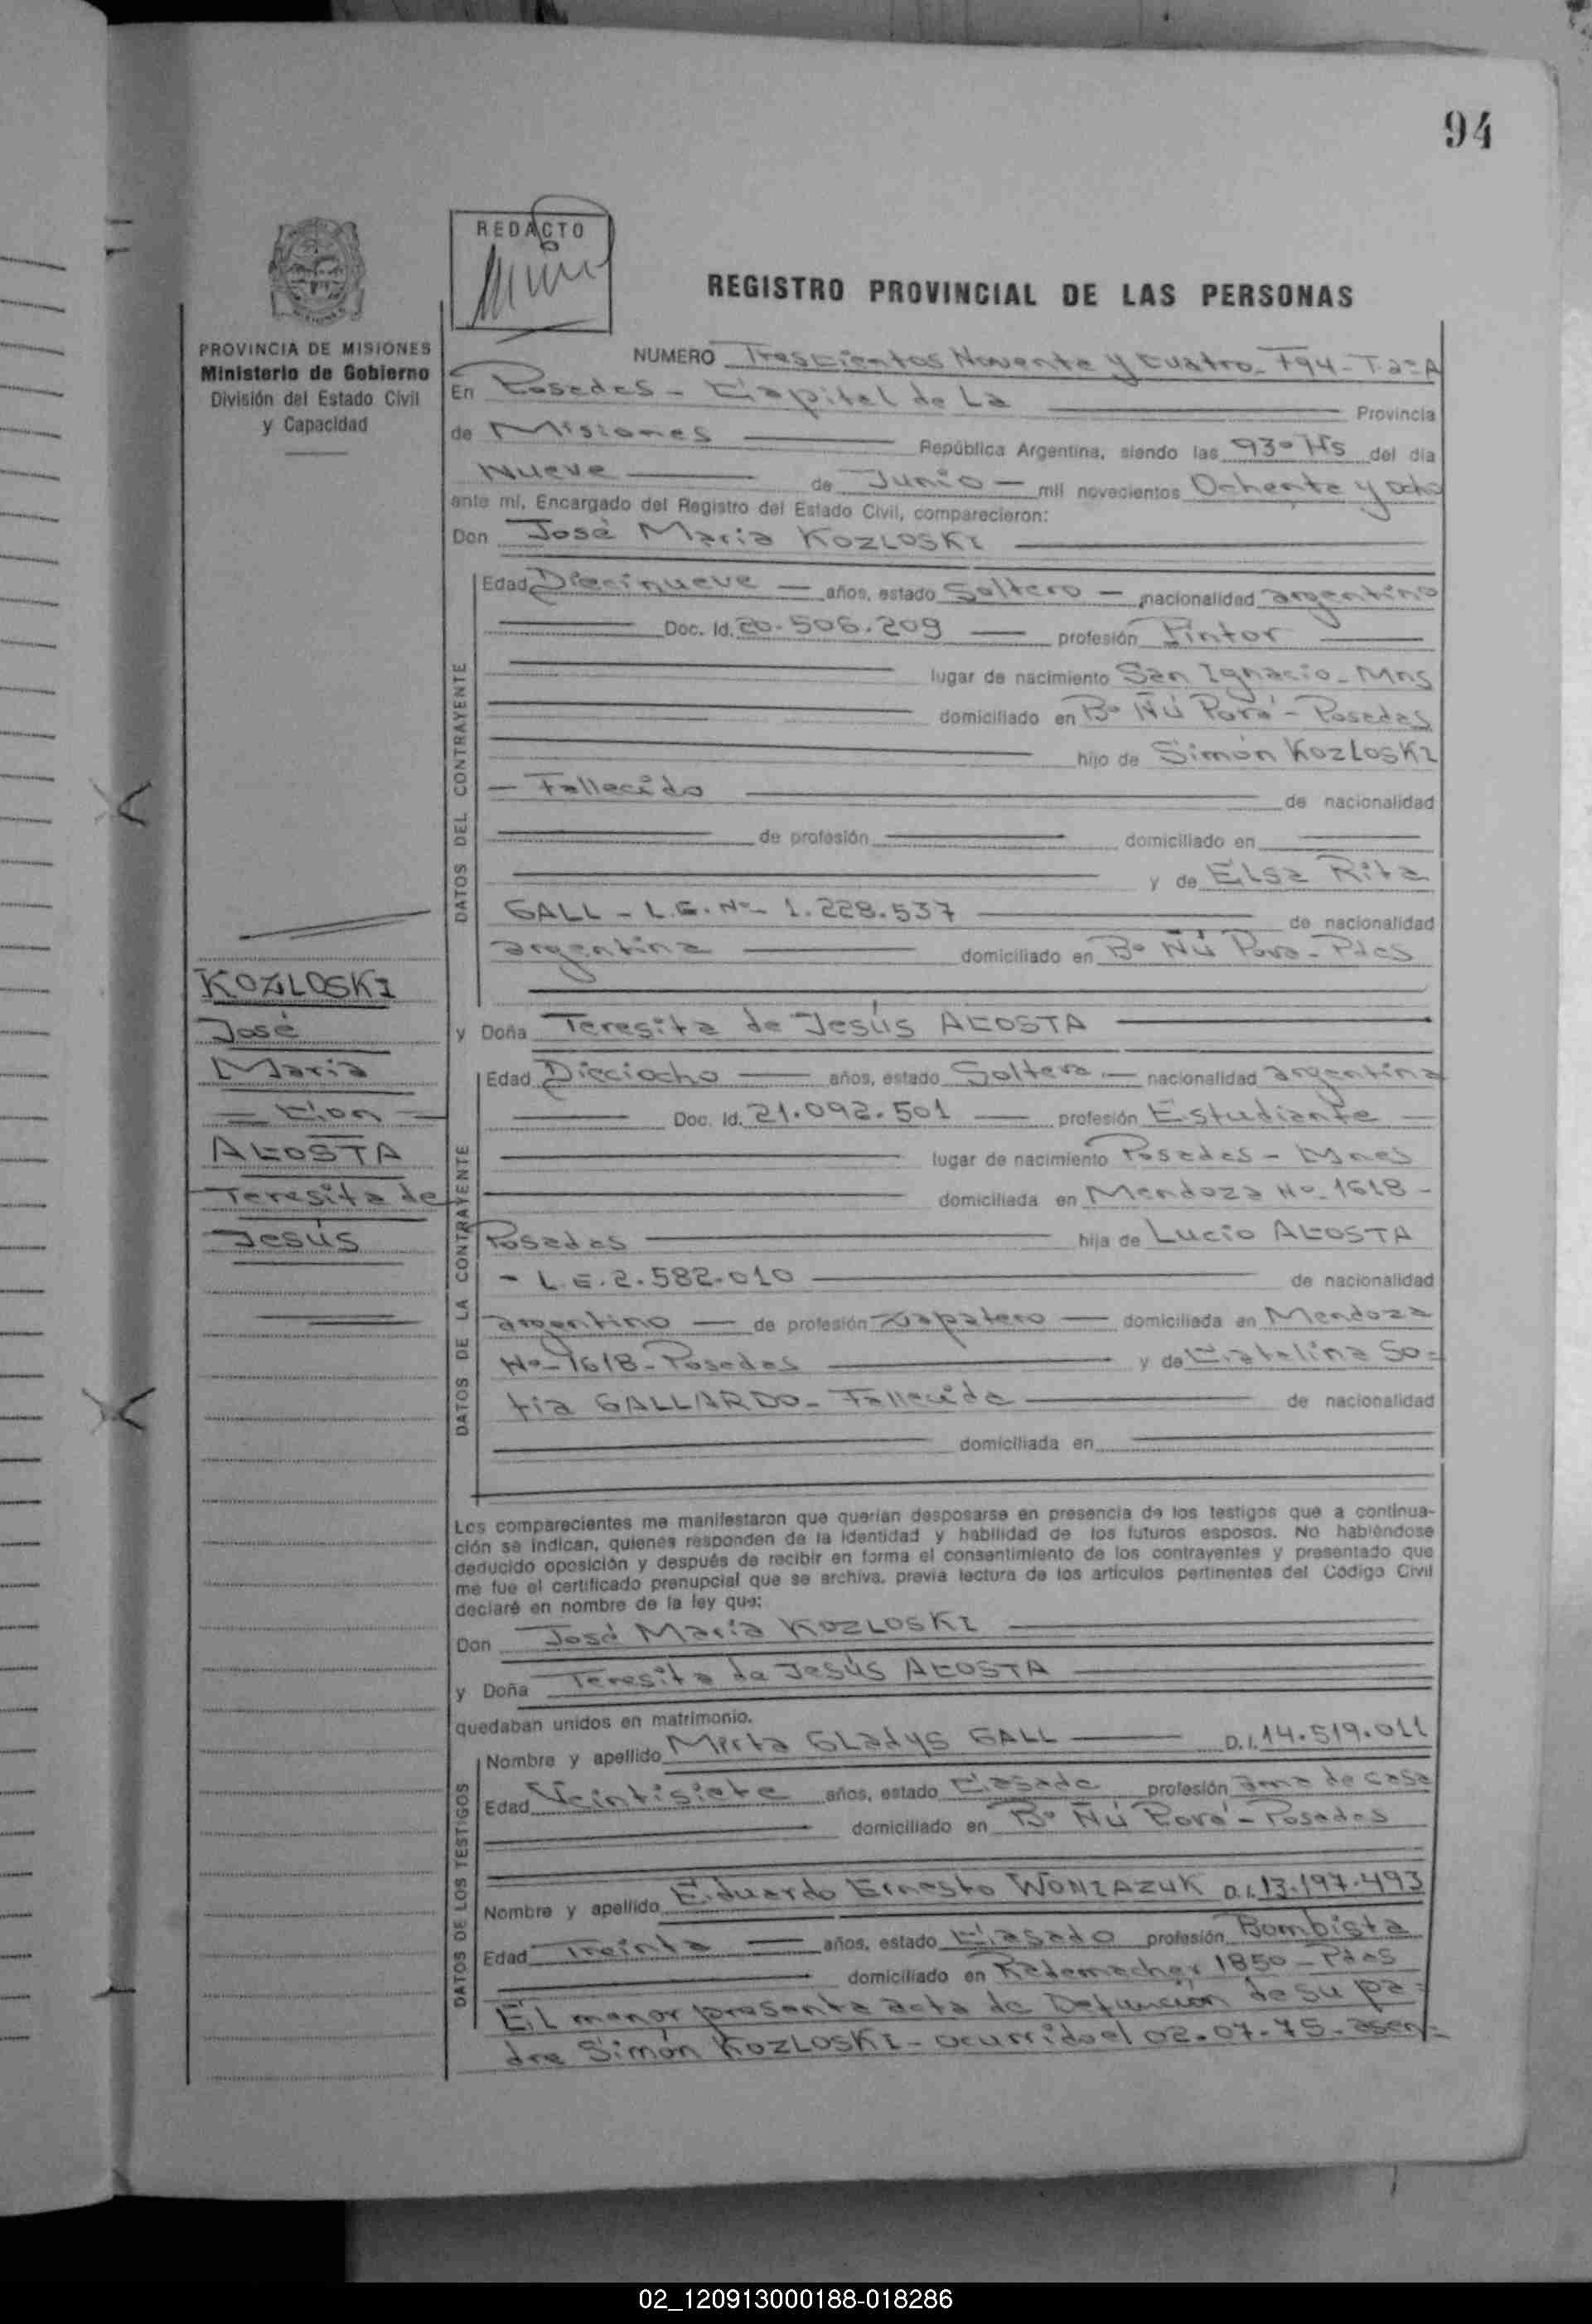 94
REDACTO
REGISTRO PROVINCIAL DE LAS PERSONAS
PROVINCIA DE MISIONES
Ministerio de Gobierno
División del Estado Civil
y Capacidad
NUMERO Trescientos Noventa y Cuatro - F94 - T.2º A
En Posadas - Capital de La Provincia
de Misiones República Argentina, siendo las 930 Hs del día
Nueve de Junio - mil novecientos Ochenta y ocho
ante mí, Encargado del Registro del Estado Civil, comparecieron:
Don José Maria KOZLOSKI
DATOS DEL CONTRAYENTE
Edad Diecinueve - años, estado Soltero - nacionalidad argentino
Doc. Id. 20.506.209 - profesión Pintor
lugar de nacimiento San Ignacio - Mns
domiciliado en Bº Ñú Porá - Posadas
hijo de Simón KozLosKi
- Fallecido de nacionalidad
de profesión domiciliado en
y de Elsa Rita
GALL - L.E. Nº 1.228.537 de nacionalidad
argentina domiciliado en Bº Ñú Pora - Pdas
y Doña Teresita de Jesús ACOSTA
KOZLOSKI
José
Maria
= Con =
ACOSTA
Teresita de
Jesús
DATOS DE LA CONTRAYENTE
Edad Dieciocho años, estado Soltera - nacionalidad argentina
Doc. Id. 21.092.501 - profesión Estudiante -
lugar de nacimiento Posadas - Mnes
domiciliada en Mendoza Nº 1618 -
Posadas hija de Lucio ACOSTA
- L.E. 2.582.010 de nacionalidad
argentino - de profesión Zapatero - domiciliada en Mendoza
Nº 1618 - Posadas y de Catalina So=
fia GALLARDO - Fallecida de nacionalidad
domiciliada en
Los comparecientes me manifestaron que querían desposarse en presencia de los testigos que a continua-
ción se indican, quienes responden de la identidad y habilidad de los futuros esposos. No habiéndose
deducido oposición y después de recibir en forma el consentimiento de los contrayentes y presentado que
me fue el certificado prenupcial que se archiva, previa lectura de los artículos pertinentes del Código Civil
declaré en nombre de la ley que:
Don José Maria KOZLOSKI
y Doña Teresita de Jesús ACOSTA
quedaban unidos en matrimonio.
DATOS DE LOS TESTIGOS
Nombre y apellido Mirta GLadys GALL D.I. 14.519.011
Edad Veintisiete años, estado Casada profesión ama de casa
domiciliado en Bº Ñú Porá - Posadas
Nombre y apellido Eduardo Ernesto WONIAZUK D.I. 13.197.493
Edad Treinta años, estado Casado profesión Bombista
domiciliado en Rademacher 1850 - Pdas
El menor presenta acta de Defunción de su pa=
dre Simón KozLosKi - ocurrido el 02.07.75 - asen=
02_120913000188-018286